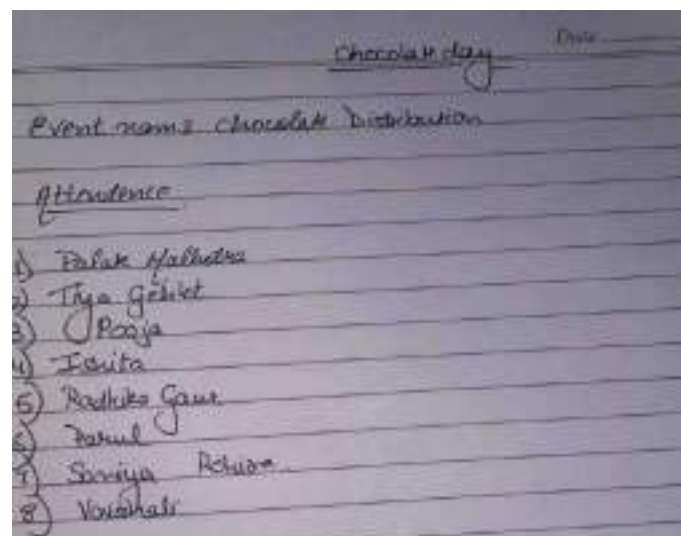 Chocolate day Date
Event name Chocolate Distribution
Attendence
1) Palak Malhotra
2) Tiya
3) Pooja
4) Ishita
5) Radhika Gaur
6) Parul
7) Saniya
8) Vaishali